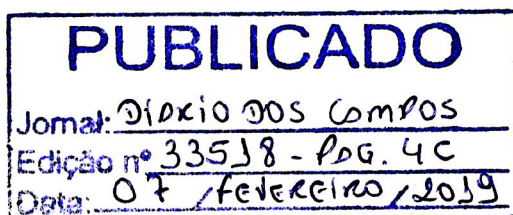 PUBLICADO
Jornal: DIÁRIO DOS CAMPOS
Edição nº 33518 - PÁG. 4C
Data: 07 / FEVEREIRO / 2019